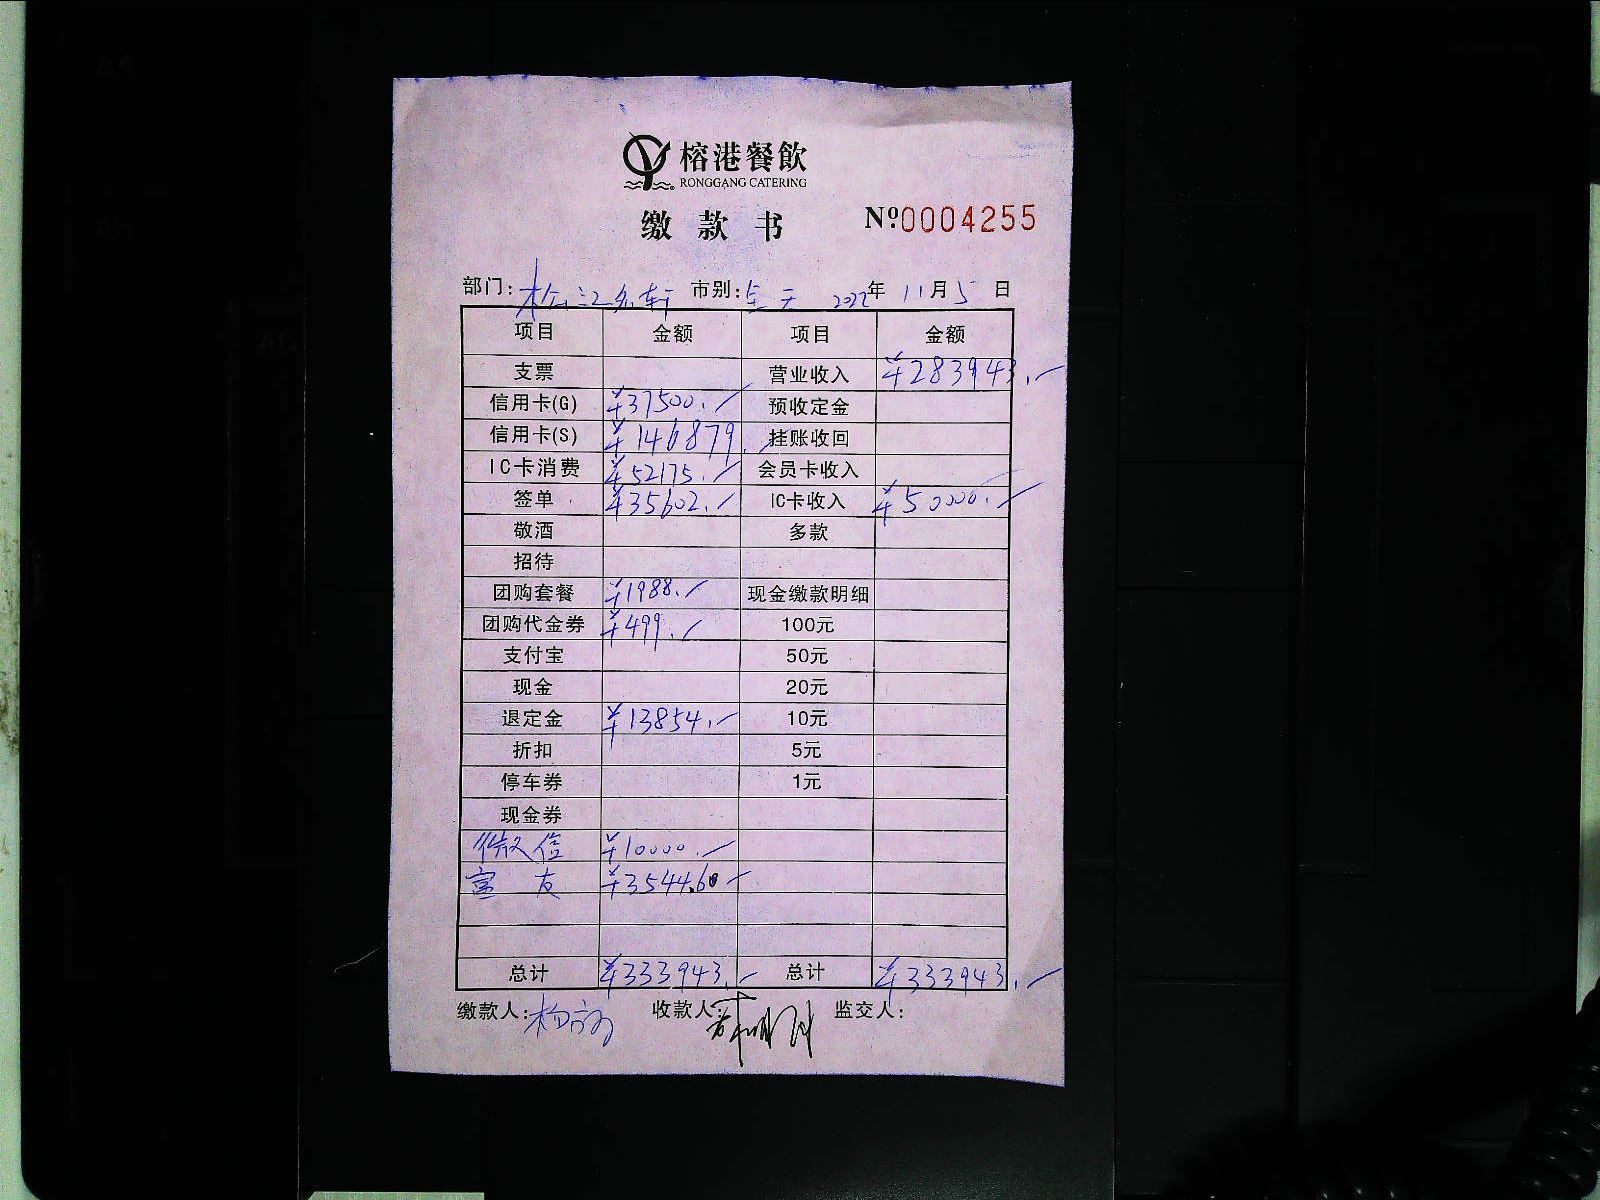 榕港餐飲
RONGGANG CATERING
缴款书 №0004255
部门: 松江名轩 市别: 全天 2022年 11月 5日
项目 金额 项目 金额
支票 营业收入 ¥283943.-
信用卡(G) ¥37500.- 预收定金
信用卡(S) ¥146879.- 挂账收回
IC卡消费 ¥52175.- 会员卡收入
签单 ¥35602.- IC卡收入 ¥50000.-
敬酒 多款
招待
团购套餐 ¥1988.- 现金缴款明细
团购代金券 ¥499.- 100元
支付宝 50元
现金 20元
退定金 ¥13854.- 10元
折扣 5元
停车券 1元
现金券
微信 ¥10000.-
¥35446.-
总计 ¥333943.- 总计 ¥333943.-
缴款人: 收款人: 监交人: